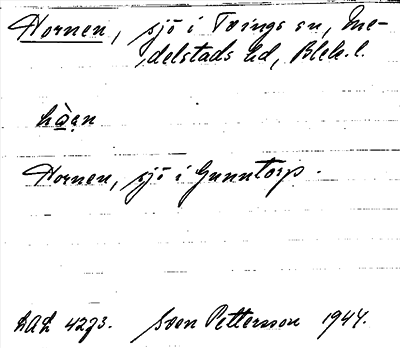 Hornen, sjö i Tvings sn, Me-
delstads hd, Blek. l.
hàa̤n
Hornen, sjö i Gunntorp.
LAL 4293. Sven Pettersson 1947.